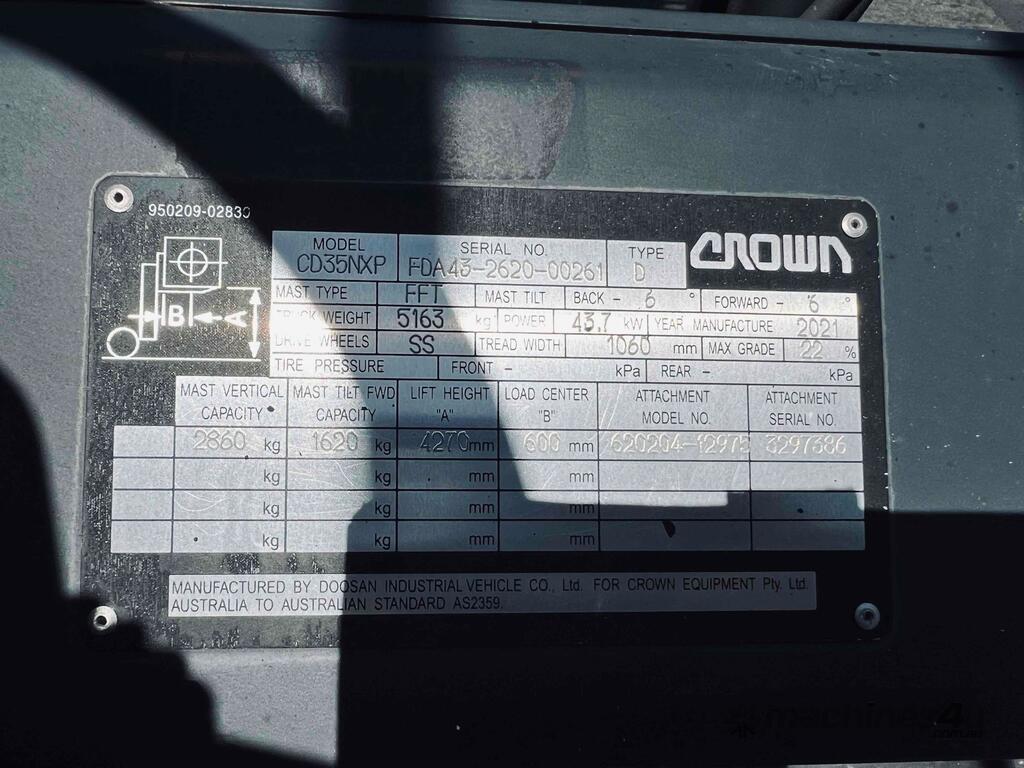 950209-02830
B
A
MODEL CD35NXP SERIAL NO. FDA43-2620-00261 TYPE D CROWN
MAST TYPE FFT MAST TILT BACK - 6 ° FORWARD - 6 °
TRUCK WEIGHT 5163 kg POWER 43.7 kW YEAR MANUFACTURE 2021
DRIVE WHEELS SS TREAD WIDTH 1060 mm MAX GRADE 22 %
TIRE PRESSURE FRONT - kPa REAR - kPa
MAST VERTICAL MAST TILT FWD LIFT HEIGHT LOAD CENTER ATTACHMENT ATTACHMENT
CAPACITY CAPACITY "A" "B" MODEL NO. SERIAL NO.
2860 kg 1620 kg 4270 mm 600 mm 620204-12975 3297686
kg kg mm mm
kg kg mm mm
kg kg mm mm
MANUFACTURED BY DOOSAN INDUSTRIAL VEHICLE CO., Ltd. FOR CROWN EQUIPMENT Pty. Ltd.
AUSTRALIA TO AUSTRALIAN STANDARD AS2359.
machines4u
.com.au